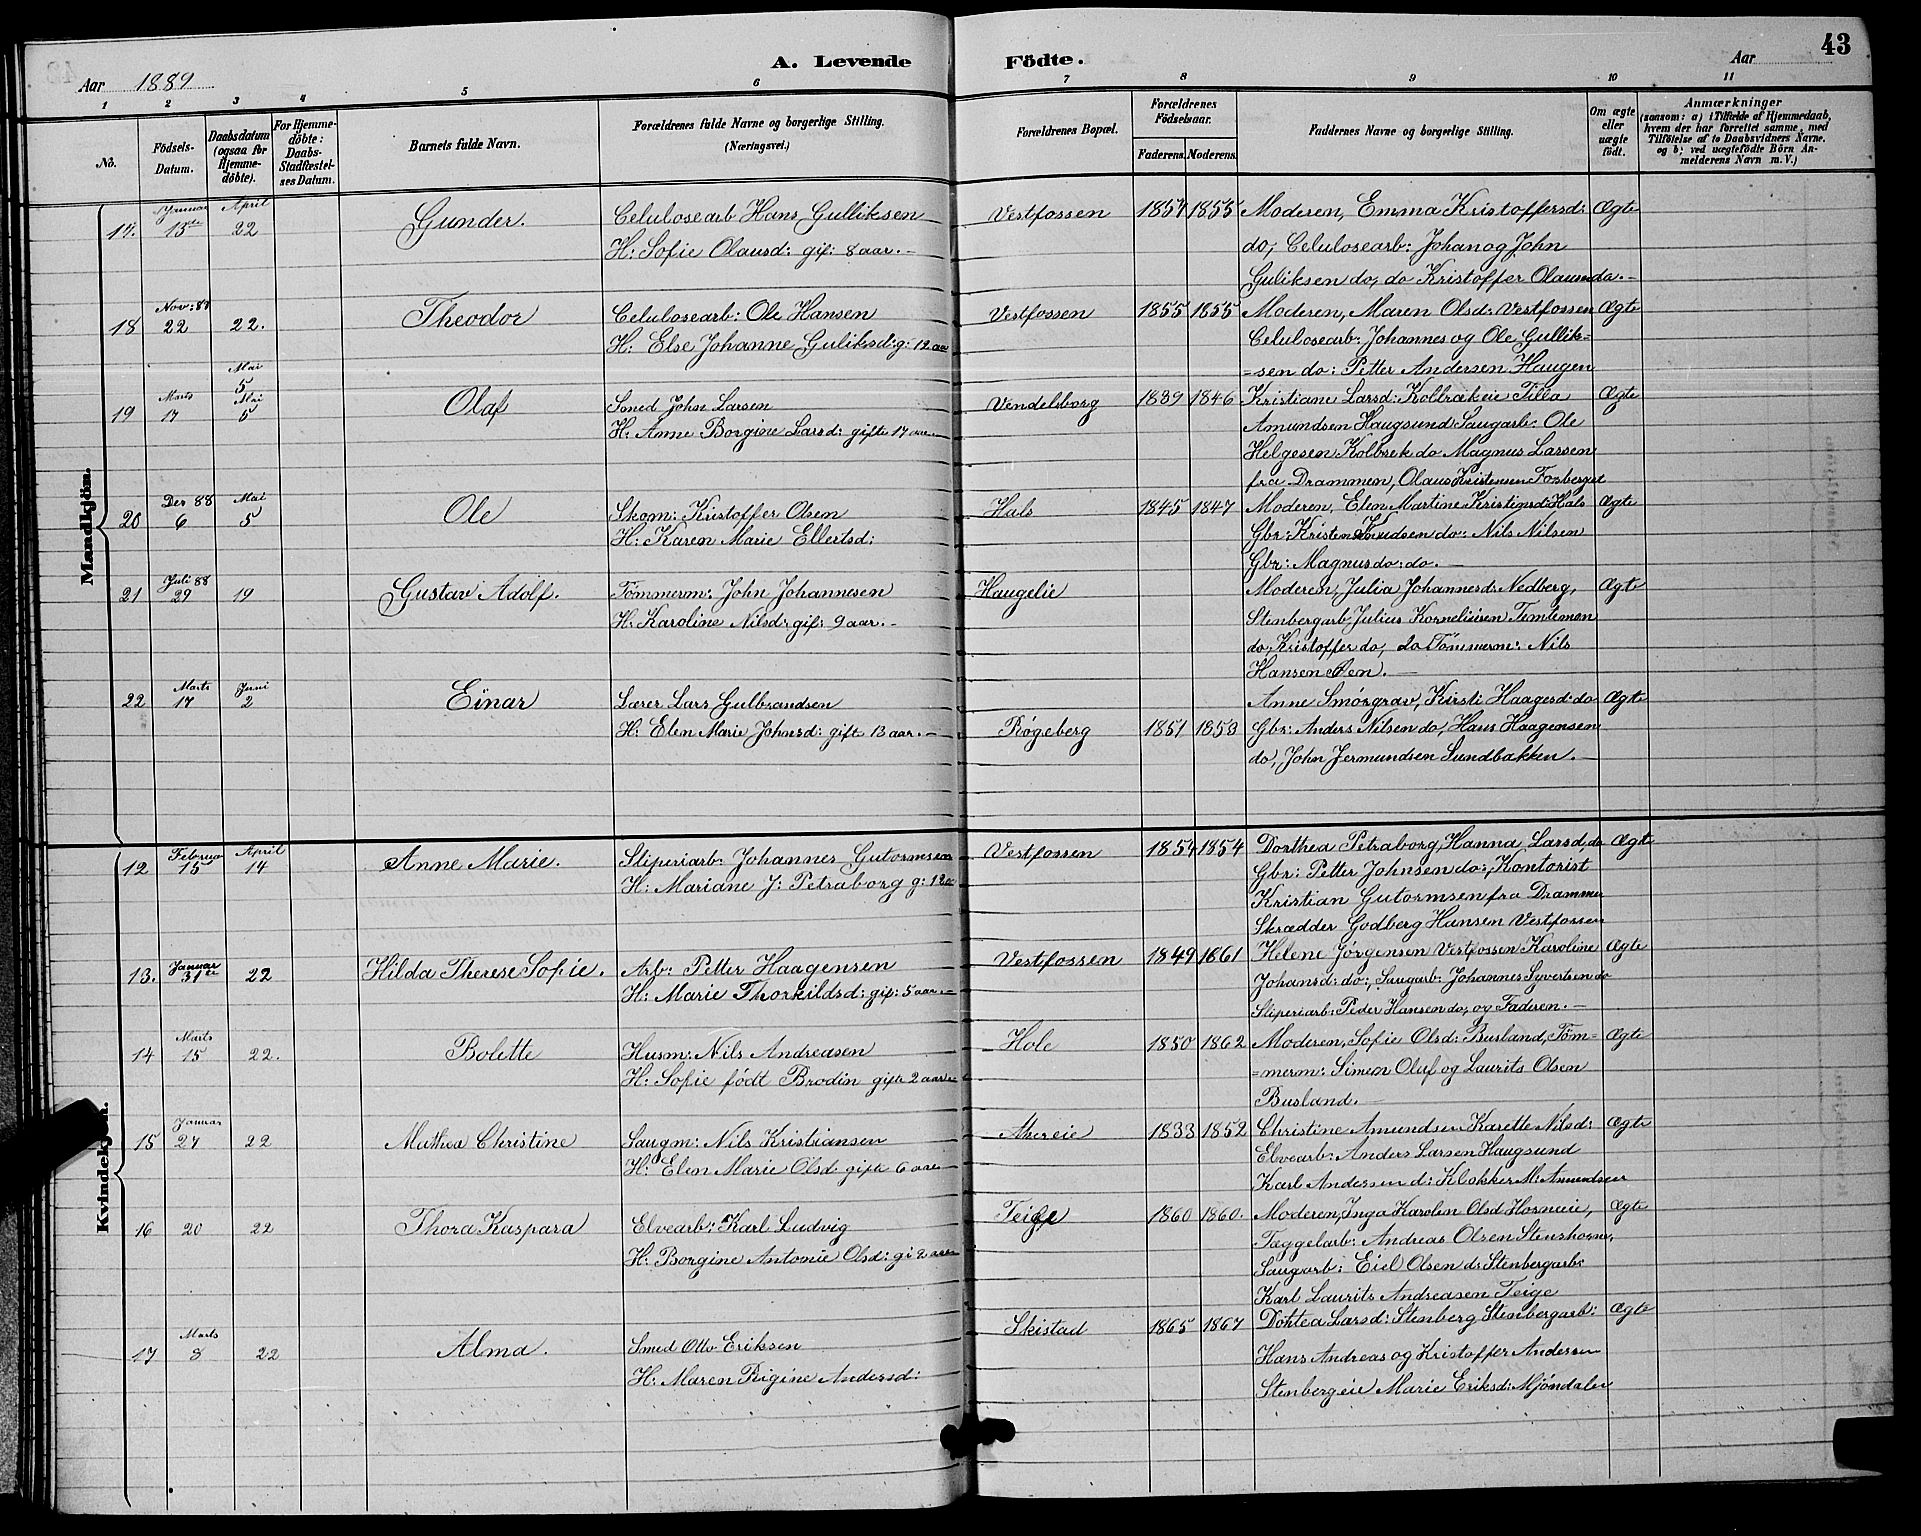 43
Aar 1889
A. Levende Födte.
Aar
1 2 3 4 5 6 7 8 9 10 11
No.
Födsels-Datum.
Daabsdatum (ogsaa for Hjemme-döbte).
For Hjemme-döbte: Daabs-Stadfæstel-ses Datum.
Barnets fulde Navn.
Forældrenes fulde Navne og borgerlige Stilling. (Næringsvei.)
Forældrenes Bopæl.
Forældrenes Födselsaar.
Faderens. Moderens.
Faddernes Navne og borgerlige Stilling.
Om ægte eller uægte födt.
Anmærkninger
(saasom: a) i Tilfælde af Hjemmedaab, hvem der har forrettet samme, med Tilföielse af to Daabsvidners Navne, og b) ved uægtefödte Börn An-melderens Navn m. V.)
Mandkjön.
Januar April
17. 15de 22 Gunder. Celulosearb Hans Gulliksen Vestfossen 1857 1855 Moderen, Emma Kristoffersd: Ægte
H: Sofie Olausd: gif: 8 aar.- do, Celulosearb: Johan og John
Guliksen do, do Kristoffer Olausen do.-
Nov: 88
18 22 22. Theodor Celulosearb: Ole Hansen Vestfossen 1855 1855 Moderen, Maren Olsd: Vestfossen Ægte
H: Else Johanne Guliksd: g: 12 aar Celulosearb: Johannes og Ole Gullik=
=sen do: Petter Andersen Haugen
Mai
5
Marts Mai
19 17 5 Olaf Smed John Larsen Vendelsborg 1839 1846 Kristiane Larsd: Kolbrækeie Tilla Ægte
H: Anne Borgine Larsd: gifte 17 aar.- Amundsen Haugsund Saugarb: Ole
Helgesen Kolbræk do Magnus Larsen
fra Drammen, Olaus Kristensen Fosberget
Des 88 Mai
20 6 5 Ole Skom: Kristoffer Olsen Hals 1845 1847 Moderen, Elen Martine Kristiansd: Hals Ægte
H: Karen Marie Ellertsd: Gbr: Kristen Knudsen do: Nils Nilsen
Gbr: Magnus do: do.-
Juli 88
21 29 19 Gustav Adolf. Tömmerm: John Johannesen Haugelie Moderen, Julia Johannesd: Nedberg, Ægte
H: Karoline Nilsd: gif: 9 aar.- Stenbergarb Julius Kornelisiren Temtemon
do, Kristoffer do, do Tömmerm: Nils
Hansen Aen.-
Marts Juni
22 17 2 Einar Lærer Lars Gulbrandsen Anne Smörgrav, Kirsti Haagensd: do Ægte
H: Elen Marie Johnsd: gift 13 aar.- Rögeberg 1851 1853 Gbr: Anders Nilsen do, Hans Haagensen
do, John Jermundsen Sundbakken.-
Kvindekjön.
Februar April
12 15 14 Anne Marie. Sliperiarb: Johannes Gutormsen Vestfossen 1854 1854 Dorthea Petraborg, Hanna Larsd, do Ægte
H: Mariane J: Petraborg g: 12 aar Gbr: Petter Johnsen do:, Kontorist
Kristian Gutormsen fra Drammen
Skrædder Godberg Hansen Vestfossen
Januar
13. 31te 22 Hilda Therese Sofie. Arb: Petter Haagensen Vestfossen 1849 1861 Helene Jörgensen Vestfossen Karoline Ægte
H: Marie Thorkildsd: gif: 5 aar.- Johansd: do:, Saugarb: Johannes Syvertsen do
Sliperiarb: Peder Hansen do, og Faderen.-
Marts
14 15 22. Bolette Husm: Nils Andreasen Hole 1850 1862 Moderen, Sofie Olsd: Busland, Töm= Ægte
H: Sofie födt Brodin gifte 2 aar.- =merm: Simen Oluf og Laurits Olsen
Busland.-
Januar
15 27 22 Mathea Christine Saugm: Nils Kristiansen Akereie 1833 1852 Christine Amundsen Karette Nilsd: Ægte
H: Elen Marie Olsd gifte 6 aar Elvearb: Anders Larsen Haugsund
Karl Andersen d: Klokker M: Amundsen
16 20 22 Thora Kaspara Elvearb: Karl Ludvig Teige 1860 1860. Moderen, Inga Karolen Olsd Horneie, Ægte
H: Borgine Antonie Olsd: gi 2 aar Tæggelarb: Andreas Olsen Stenshorne,
Saugarb: Eiel Olsen d: Stenbergarb:
Karl Laurits Andreasen Teige
Marts
17 8 22 Alma. Smed Otto Eriksen Skistad 1865 1867 Dortea Larsd: Stenberg Stenbergarb: Ægte
H: Maren Rigine Andersd: Hans Andreas og Kristoffer Andersen
Stenbergeie Marie Eriksd: Mjöndalen